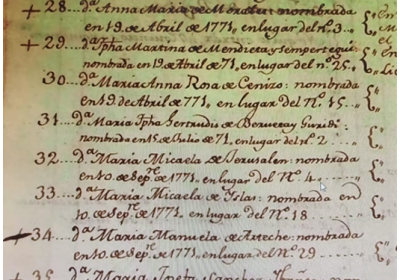 + 28 ... d.ª Anna Maria de Morales: nombrada
en 19 de Abril de 1771, en lugar del n.º 3...
+ 29 ... d.ª Jpha Martina de Mendieta y Sempertegui:
nombrada en 19 de Abril de 71, en lugar del n.º 25.
30 ... d.ª Maria Anna Rosa de Cenizo: nombrada
en 19 de Abril de 771, en lugar del N.º 15.
31 ... d.ª Maria Jpha Gertrudis de Berueta y Guridi:
nombrada en 15 de Julio de 71, en lugar del n.º 2...
32 ... d.ª Maria Micaela de Jerusalen: nombrada
en 10. de Sep.re de 1771, en lugar del N.º 4...
33 ... d.ª Maria Micaela de Yslas: nombrada en
10. de Sep.re de 1771, en lugar del N.º 18...
+ 34 ... d.ª Maria Manuela de Arteche: nombrada
en 10. de Sep.re de 1771, en lugar del N.º 29
+ 35 ... d.ª Maria